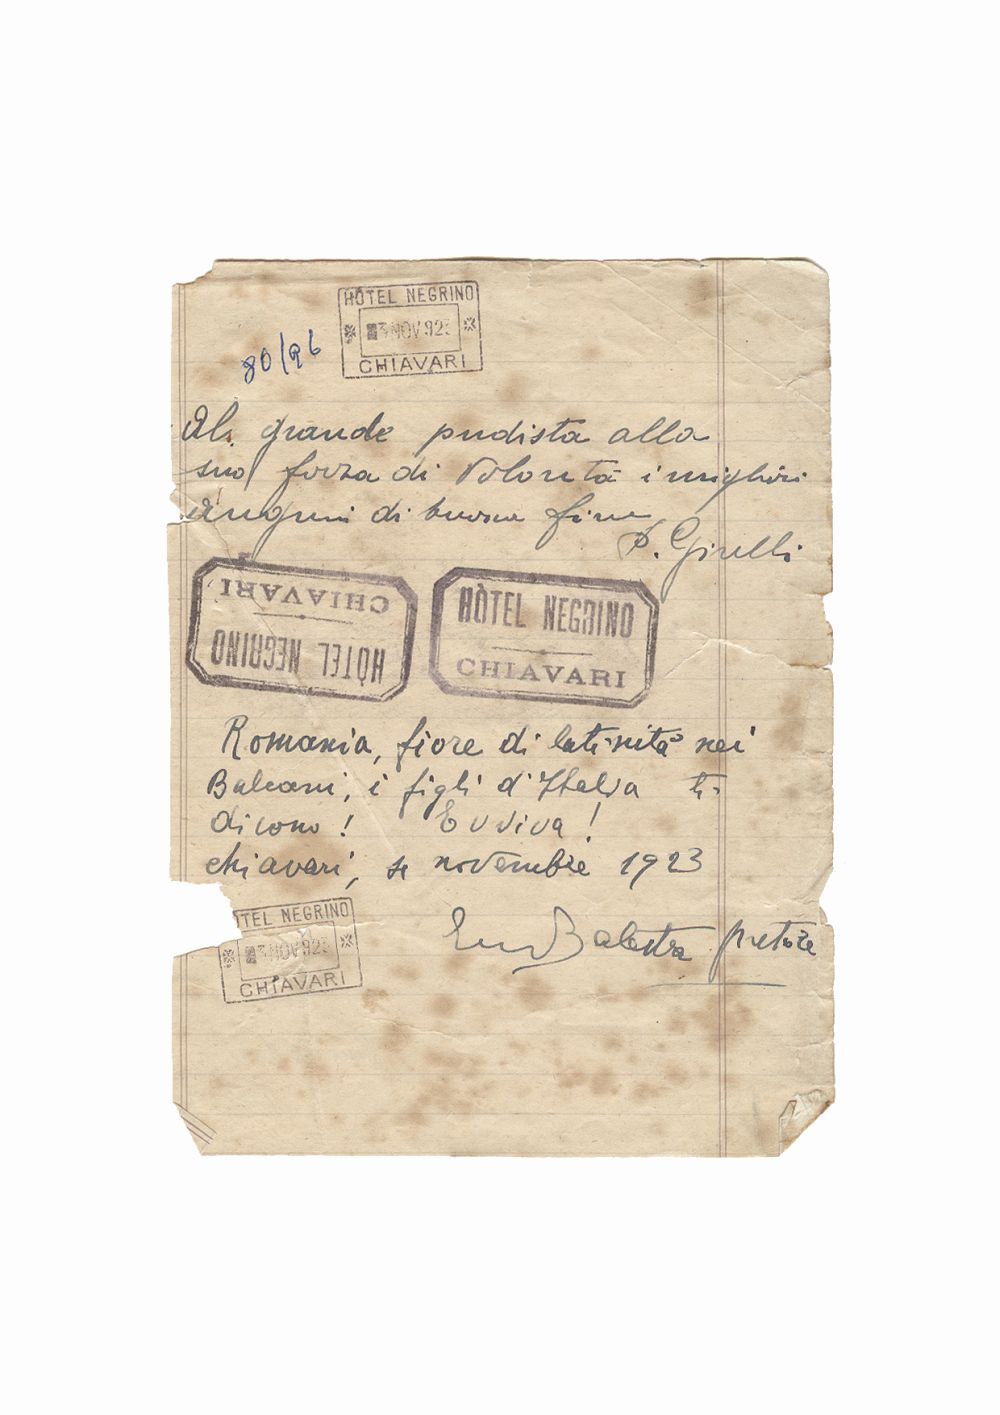 HÔTEL NEGRINO
3 NOV 923
CHIAVARI
80/96
Al grande pudista alla
sua forza di volontà i migliori
auguri di buona fine
Girelli
HÒTEL NEGRINO
CHIAVARI
HÒTEL NEGRINO
CHIAVARI
Romania, fiore di latinità nei
Balcani, i figli d'Italia ti
dicono! Evviva!
Chiavari, novembre 1923
Balestra pretore
TEL NEGRINO
3 NOV 923
CHIAVARI